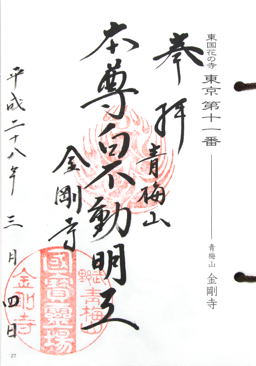 東国花の寺 東京 第十一番
青梅山 金剛寺
奉拝
青梅山
本尊白不動明王
金剛寺
平成二十八年 三月 四日
武野
青梅山
國寶靈場
金剛寺
27